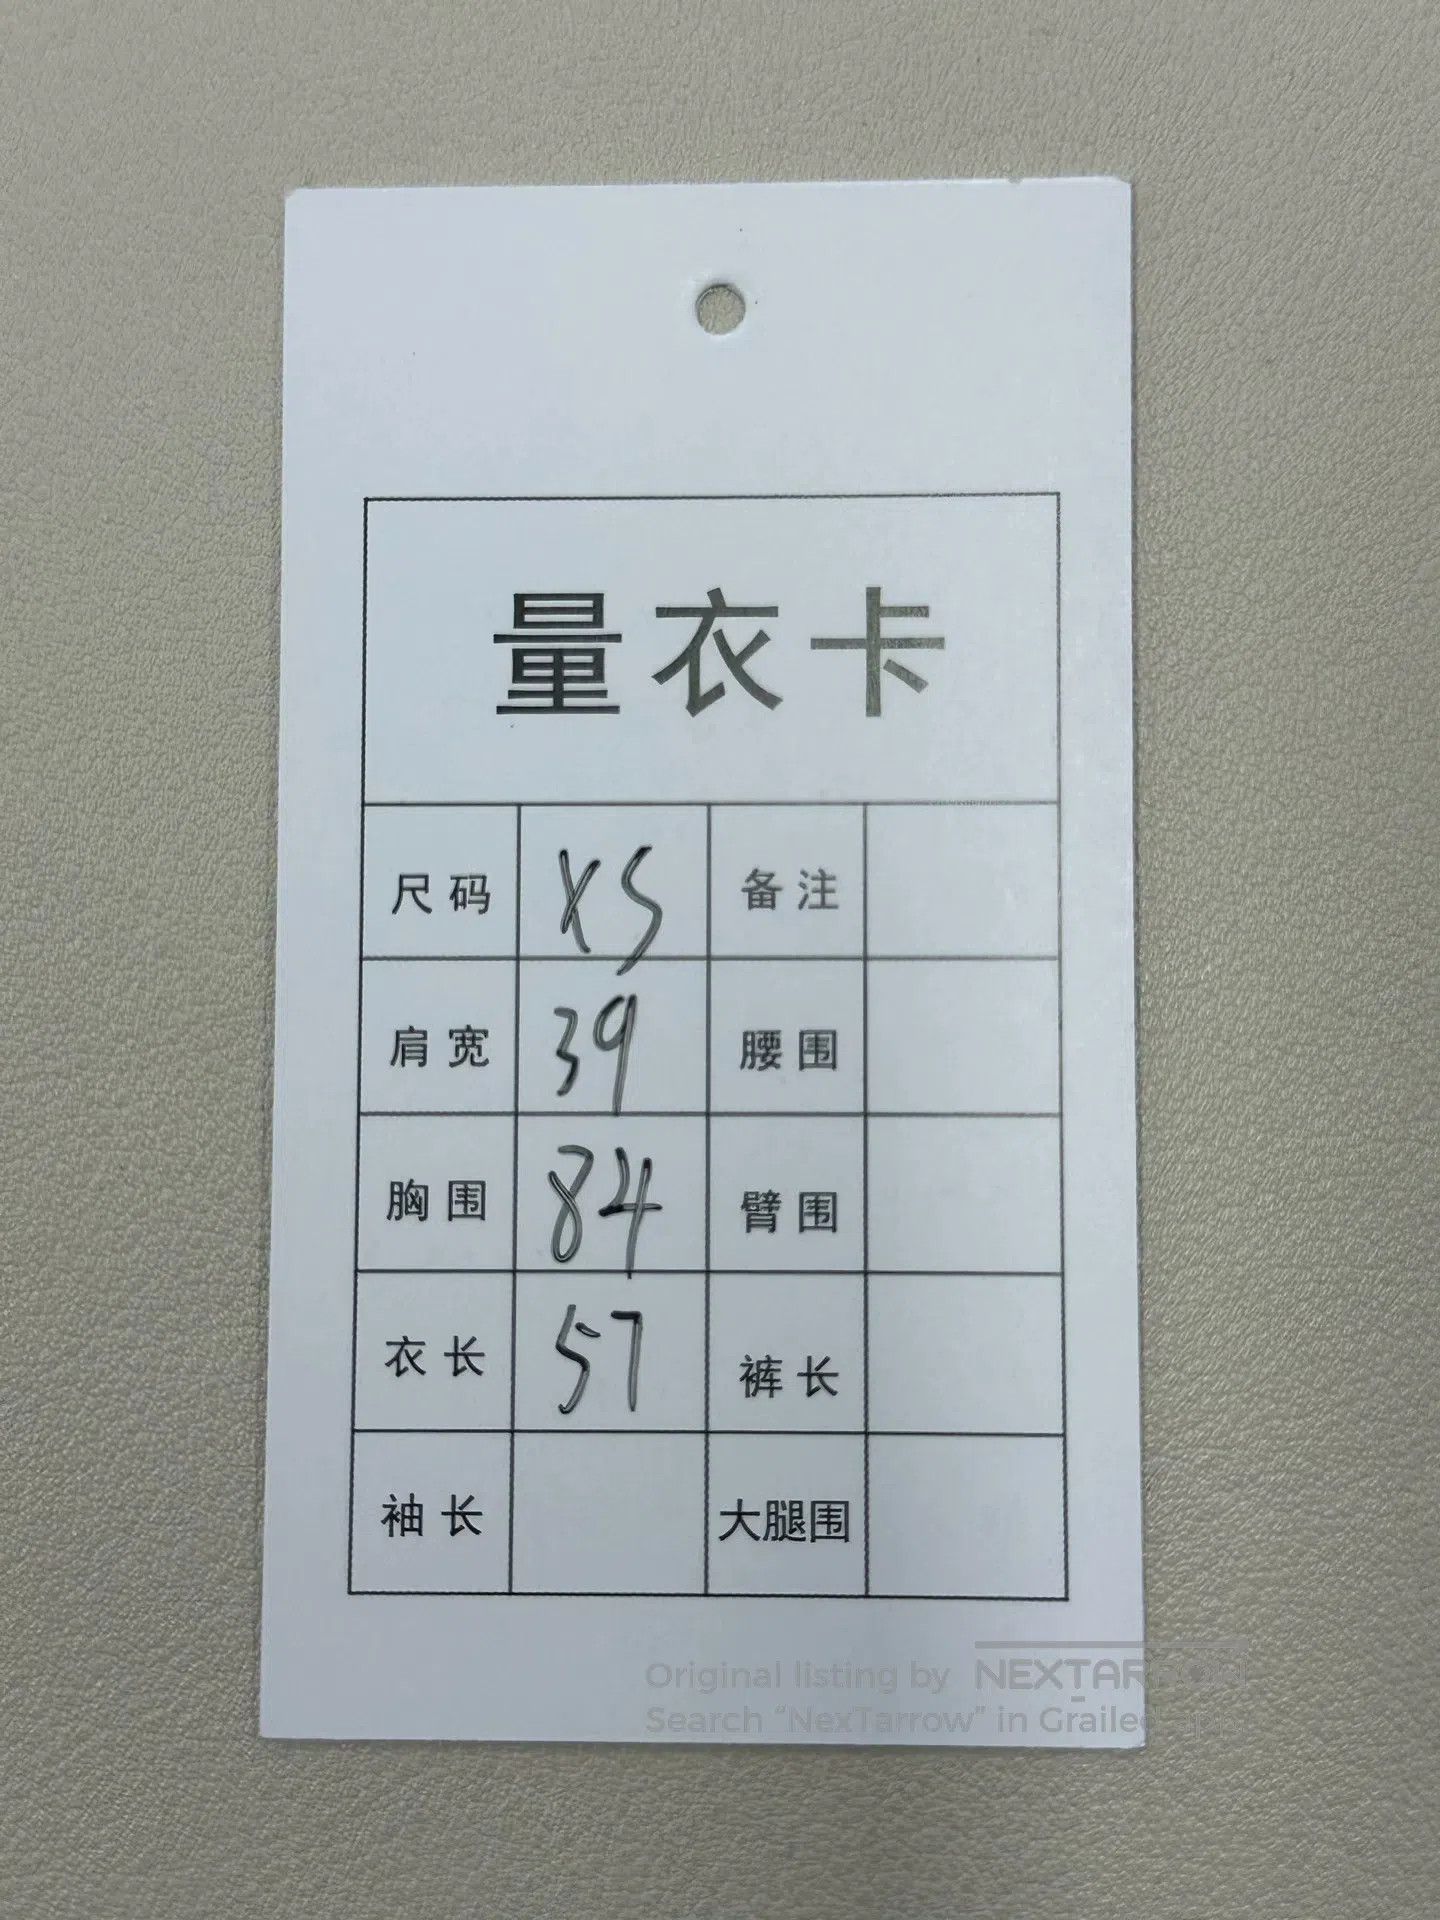 量衣卡
尺码 XS 备注
肩宽 39 腰围
胸围 84 臂围
衣长 57 裤长
袖长 大腿围
Original listing by NEXTARROW
Search “NexTarrow” in Grailed